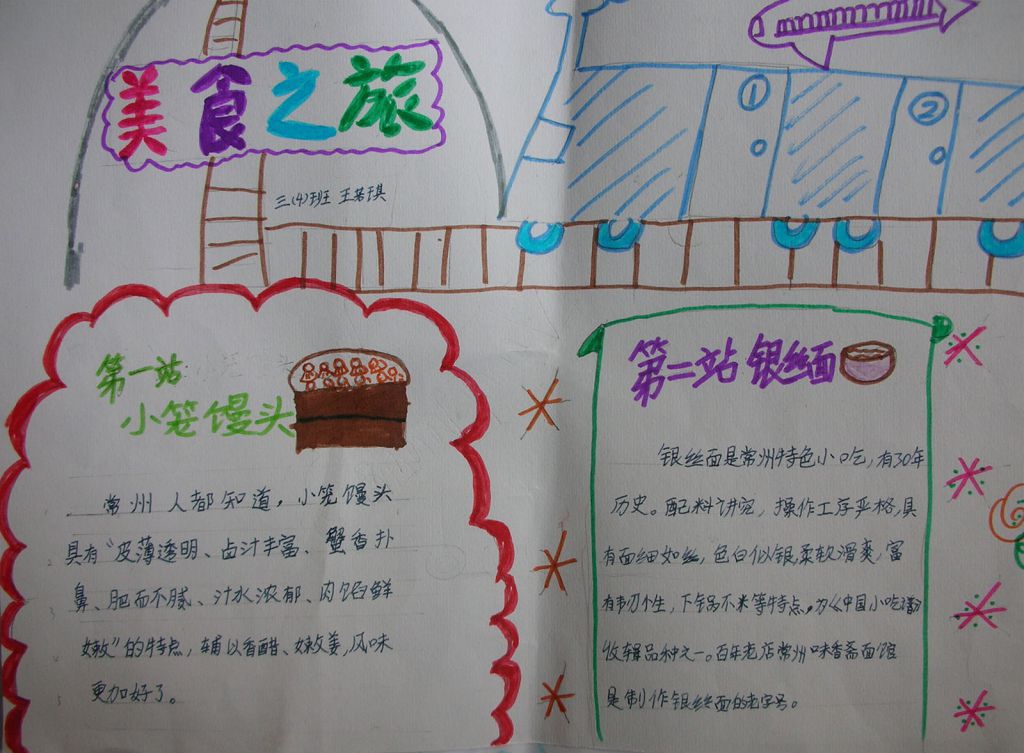 美食之旅
三(4)班 王若琪
①
②
第一站
小笼馒头
常州人都知道,小笼馒头
具有“皮薄透明、卤汁丰富、蟹香扑
鼻、肥而不腻、汁水浓郁、肉馅鲜
嫩”的特点,辅以香醋、嫩姜,风味
更加好了。
第二站 银丝面
银丝面是常州特色小吃,有30年
历史。配料讲究,操作工序严格,具
有面细如丝,色白似银,柔软滑爽,富
有韧个生,下锅不米等特点。为《中国小吃谱》
收辑品种之一。百年老店常州味香斋面馆
是制作银丝面的老字号。